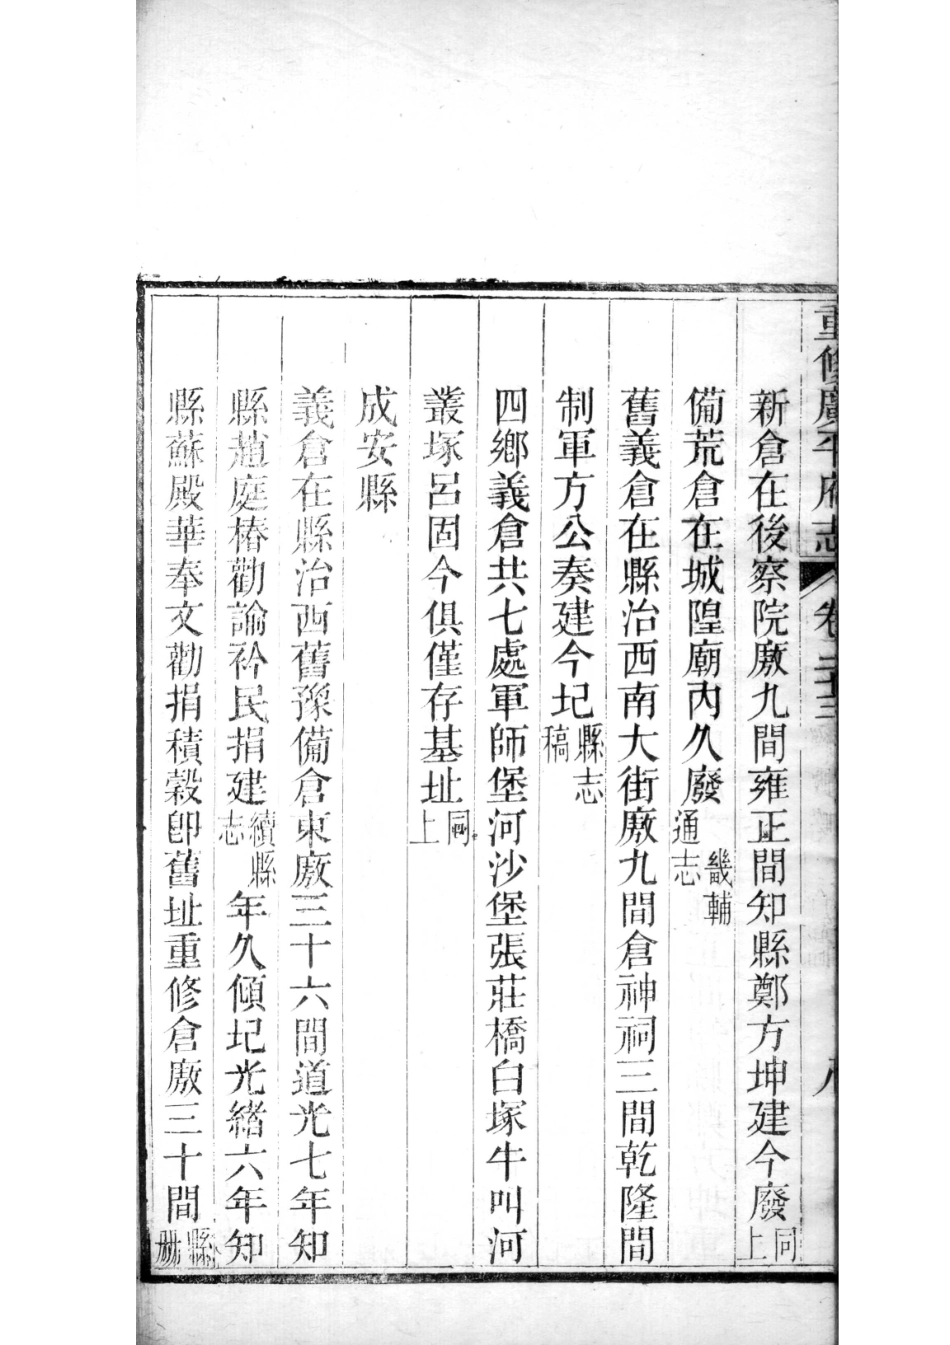 重修廣平府志 卷二十三 八
新倉在後察院廒九間雍正間知縣鄭方坤建今廢同上
備荒倉在城隍廟內久廢畿輔通志
舊義倉在縣治西南大街廒九間倉神祠三間乾隆間
制軍方公奏建今圮縣志稿
四鄉義倉共七處軍師堡河沙堡張莊橋白塚牛叫河
叢塚呂固今俱僅存基址同上
成安縣
義倉在縣治西舊豫備倉東廒三十六間道光七年知
縣趙庭椿勸諭衿民捐建續縣志年久傾圮光緒六年知
縣蘇殿華奉文勸捐積穀卽舊址重修倉廒三十間縣冊